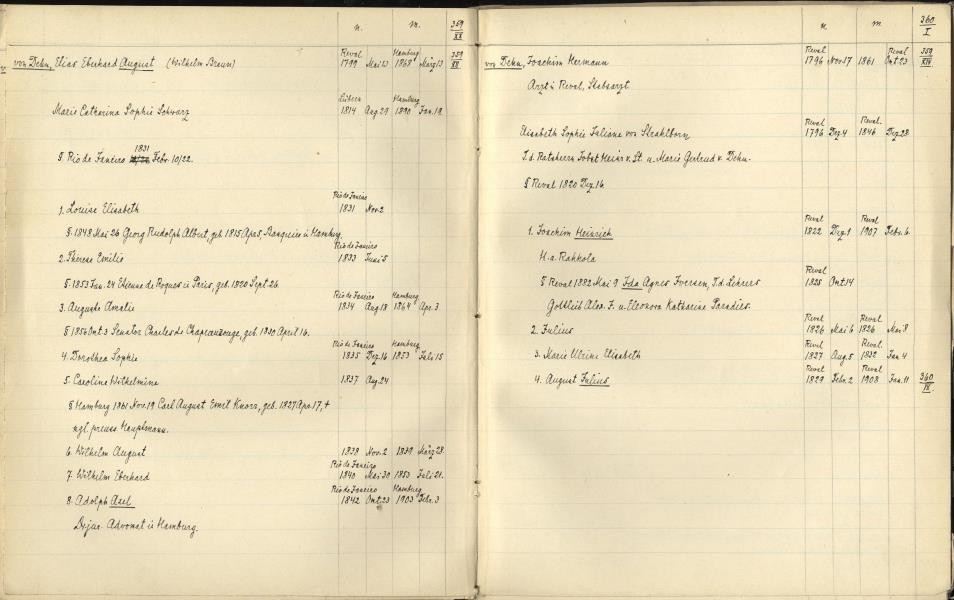 n. m. 359
XX
Reval Hamburg 359
von Dehn, Elias Eberhard August (Wilhelm Braun) 1799 Mai 13 1868 März 13
Lübeck Hamburg
Marie Catharina Sophie Schwarz 1814 Aug. 29 1890 Jan. 19.
1831
§ Rio de Janeiro Febr. 10/22.
Rio de Janeiro
1. Louise Elisabeth 1831 Nov. 2
§. 1848 Mai 26 Georg Rudolph Albert, geb. 1815 Apr. 5, Banquier i Hamburg.
Rio de Janeiro
2. Therese Emilie 1833 Juni 5
§. 1853 Jan. 24 Etienne de Roques i Paris, geb. 1820 Sept. 26.
Rio de Janeiro Hamburg
3. Auguste Amalie 1834 Aug 18 1864 Apr. 3
§ 1856 Okt. 3 Senator Charles de Chapeaurouge, geb. 1830 April 16.
Rio de Janeiro Hamburg
4. Dorothea Sophie 1835 Dez. 16 1853 Juli 15
5. Caroline Wilhelmine 1837 Aug. 24
§ Hamburg 1861 Nov. 19 Carl August Emil Knorr, geb. 1827 Apr. 17, †
kgl. preuss. Hauptmann.
6. Wilhelm August 1838 Nov. 2 1839 März 28.
Rio de Janeiro
7. Wilhelm Eberhard 1840 Mai 30 1853 Juli 21.
Rio de Janeiro Hamburg
8. Adolph Axel 1842 Okt. 23 1903 Febr. 3
Dr. jur. Advokat i Hamburg.
n. m. 360
I
Reval Reval 359
von Dehn, Joachim Hermann 1796 Nov 17 1861 Okt. 23 XIV
Arzt i Reval, Stabsarzt.
Reval Reval.
Elisabeth Sophie Juliane von Strahlborn 1796 Dez. 4 1846 Dez. 28
T. d. Ratsherrn Jobst Heinr. v. St. u. Marie Gertrud v. Dehn.
§ Reval 1820 Dez. 16
Reval Reval
1. Joachim Heinrich 1822 Dez. 1 1907 Febr. 6.
H. a. Rahkola
Reval
§ Reval 1882 Mai 9 Ida Agnes Iversen, T. d. Lehrers 1855 Okt. 14
Gottlieb Alex. J. u. Eleonora Katharine Paradies.
Reval Reval
2. Julius 1826 Mai 6 1826 Mai 8
Reval Reval.
3. Marie Ulrike Elisabeth 1827 Aug. 5 1832 Jan 4
Reval Reval
4. August Julius 1829 Febr. 2 1908 Jan. 11 360